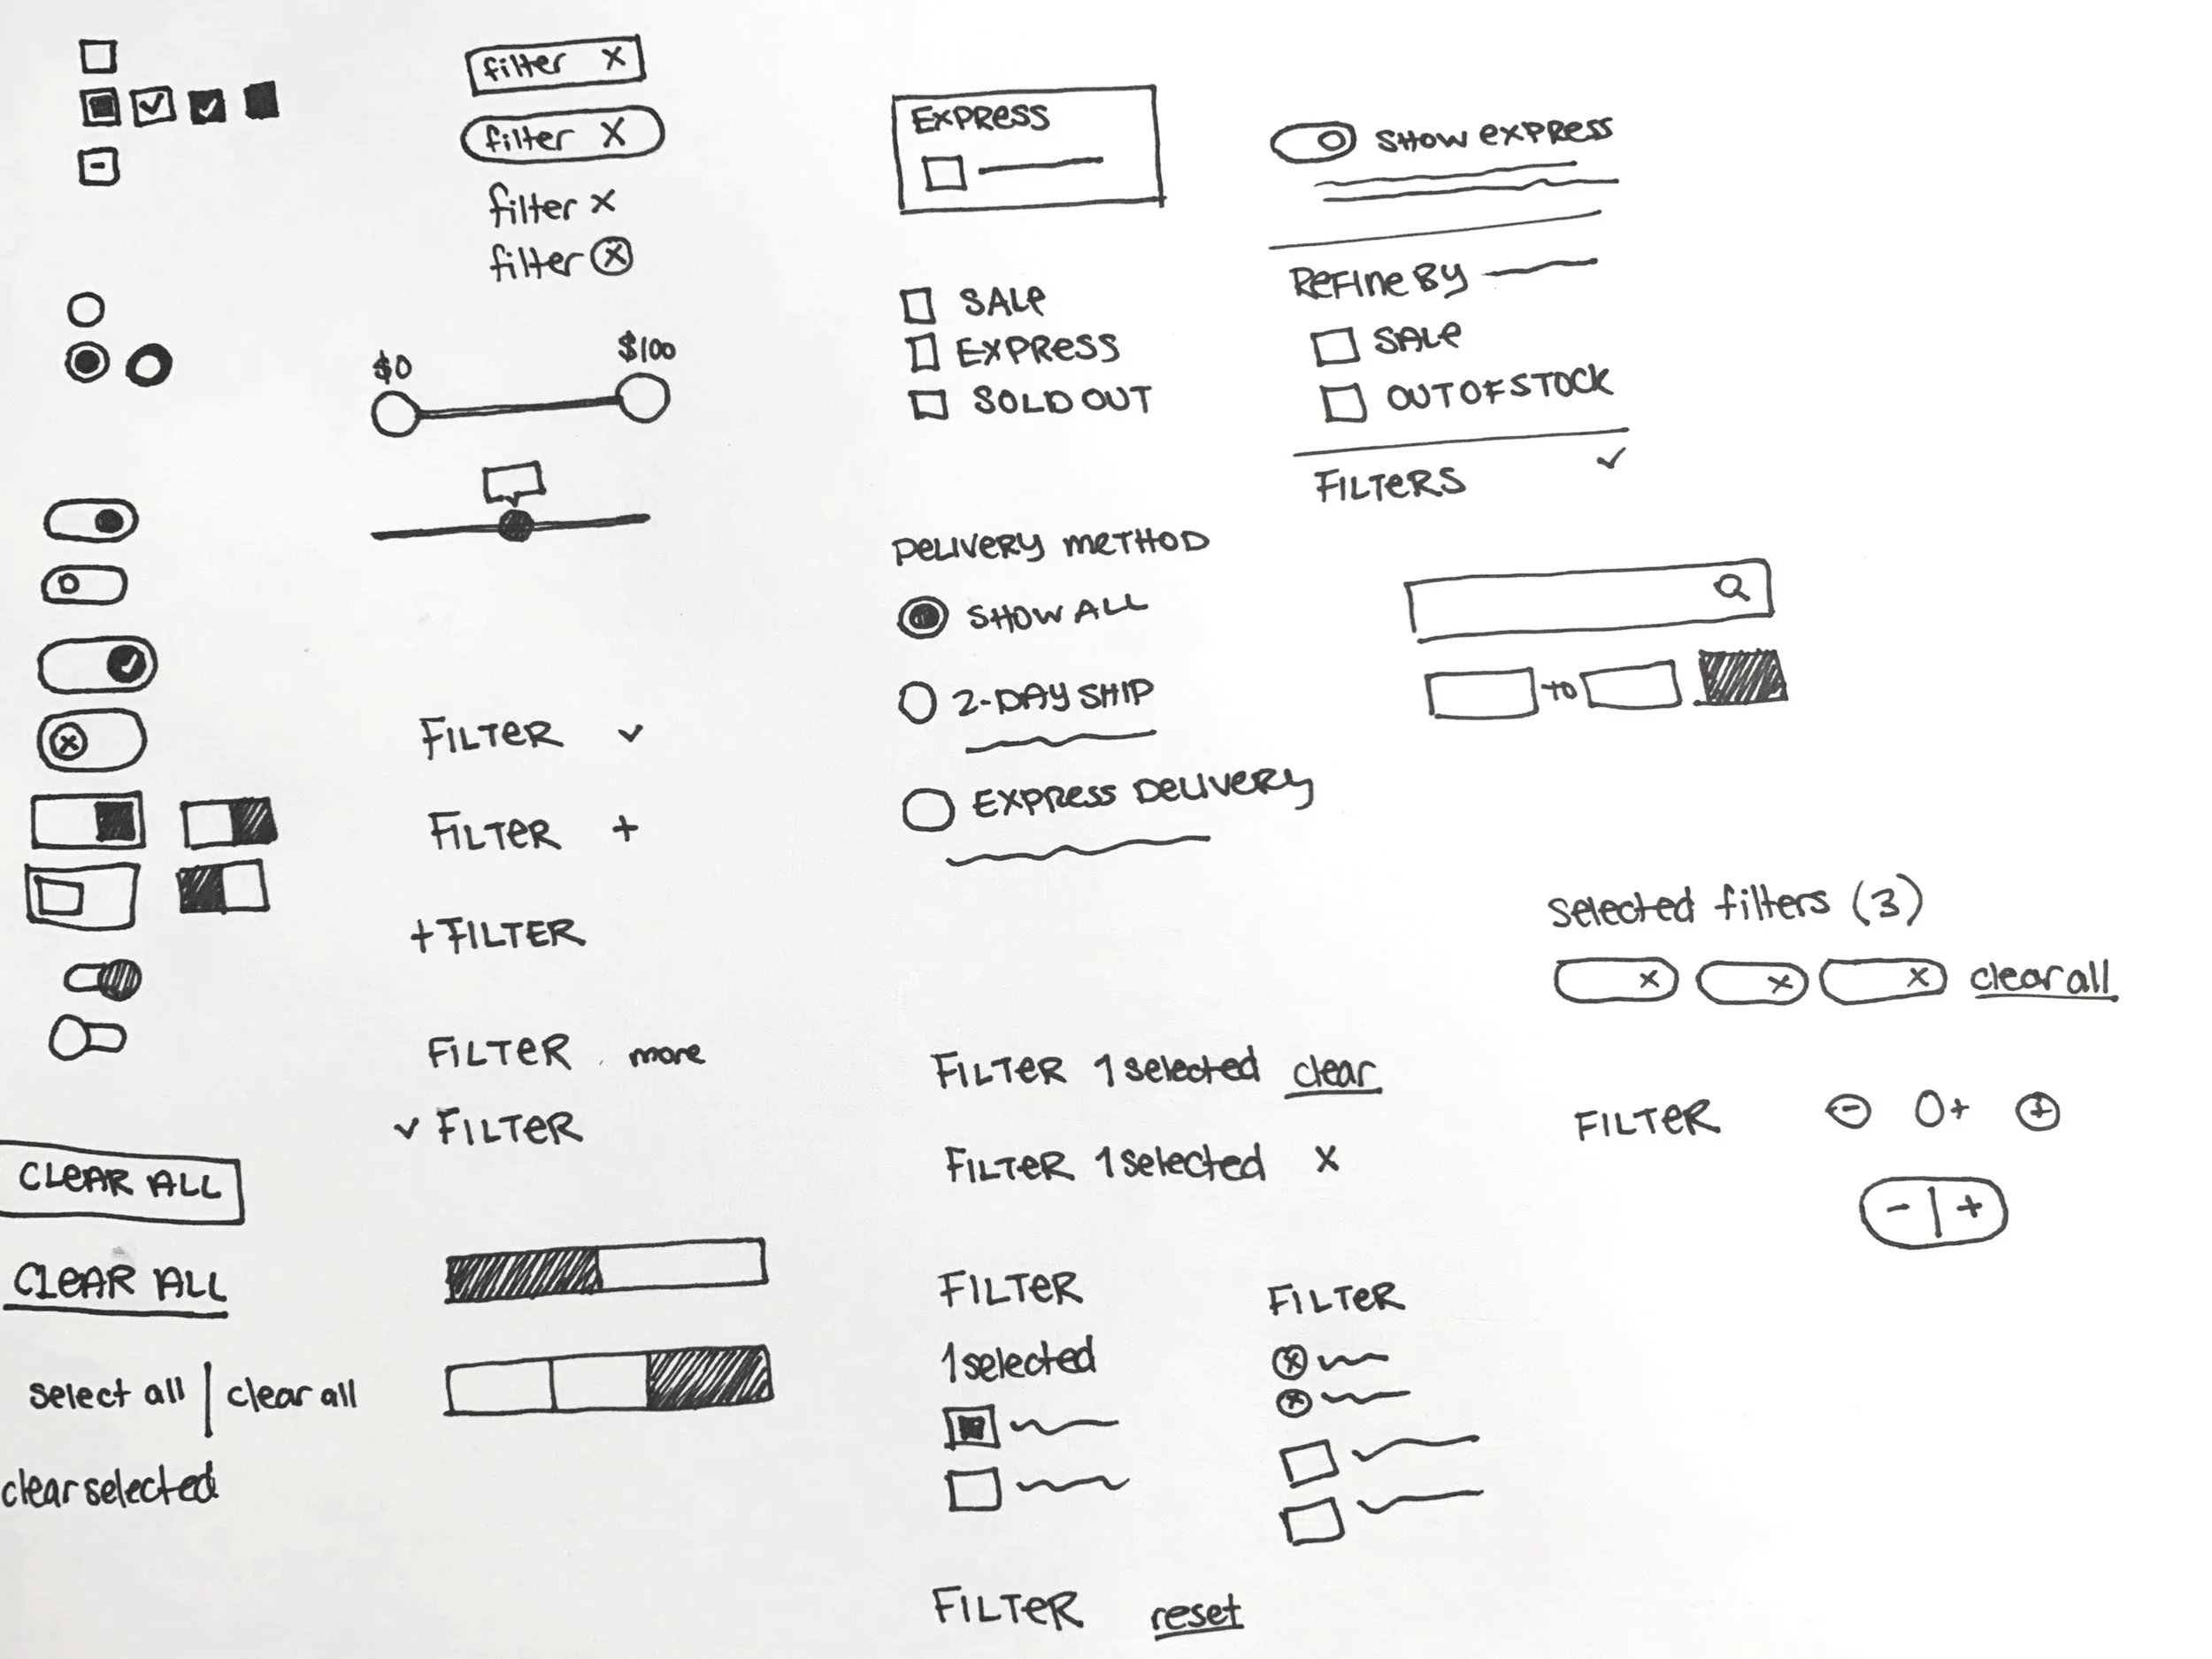 filter X
filter X
filter x
filter x
$0 $100
FILTER
FILTER +
+ FILTER
FILTER more
FILTER
CLEAR ALL
CLEAR ALL
select all | clear all
clear selected
EXPRESS
SALE
EXPRESS
SOLD OUT
DELIVERY METHOD
SHOW ALL
2-DAY SHIP
EXPRESS DELIVERY
SHOW EXPRESS
REFINE BY
SALE
OUT OF STOCK
FILTERS
to
selected filters (3)
x x x clear all
FILTER 1 selected clear
FILTER 1 selected x
FILTER - 0+ +
- | +
FILTER
1 selected
FILTER
x
x
FILTER reset